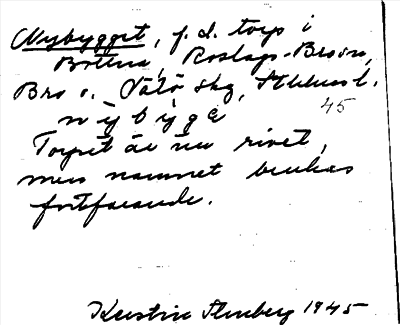 Nybygget, f.d. torp i
Bottna, Roslags-Broskn,
Bro o. Vätö skg, Sthlms l.
nỳbỳgə 45
Torpet är nu rivet,
men namnet brukas
fortfarande.
Kerstin Stenberg 1945